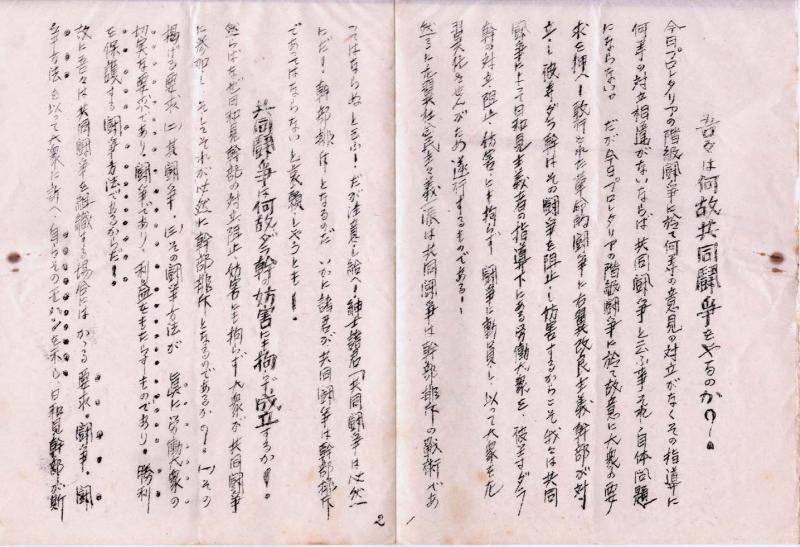 吾々は何故共同闘争をやるのか?――。
今日プロレタリアの階級闘争に於て何等の意見の対立がなくその指導に
何等の対立相違がないならば共同闘争と云ふ事それ自体問題
にならない。だが今日プロレタリアの階級闘争に於て故意に大衆の要
求を押へ、敢行された革命的闘争に右翼改良主義幹部が対
立し、彼等ダラ幹はその闘争を阻止し妨害するからこそ我々は共同
闘争によって日和見主義者の指導下にある労働大衆を彼等ダラ
幹の対立阻止、妨害にも拘らず、闘争に動員し、以って大衆を
化せんがため遂行するものである!――
然るに左翼社会民主々義一派は共同闘争は幹部排斥の戦術であ
ってはならぬと云ふ!だが注意し給へ!紳士諸君「共同闘争は必然
にだ!――幹部排斥となるのだ いかに諸君が共同闘争は幹部排斥
であってはならないと哀願しやうとも!――。
共同闘争は何故ダラ幹の妨害にも拘らず成立するか!――。
然らばなぜ日和見幹部の対立阻止、妨害にも拘らず大衆が共同闘争
に参加し、そしてそれが必然に幹部排斥となるのであるか?――。(一)その
掲げる要求、(二)其闘争、(三)その闘争方法が 真に労働大衆の
切実な要求であり、闘争であり、利益をもたらすものであり、勝利
を保護する闘争方法であるからだ!――。
故に吾々は共同闘争を組織する場合には かゝる要求、闘争、闘
争方法を以って大衆に訴へ、自らその を示し、日和見幹部が
2
1